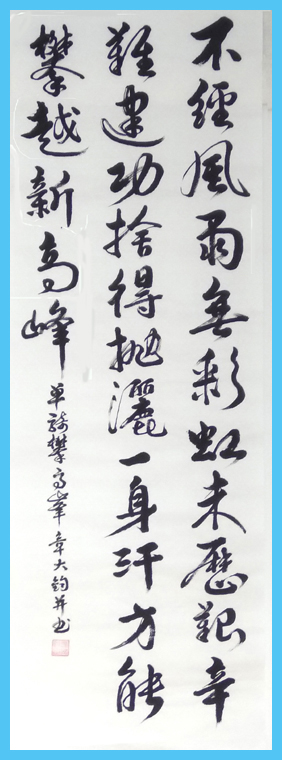 不經風雨無彩虹未歷艱辛
難建功捨得拋灑一身汗方能
攀越新高峰
单騎攀高峯 章大鈞并书